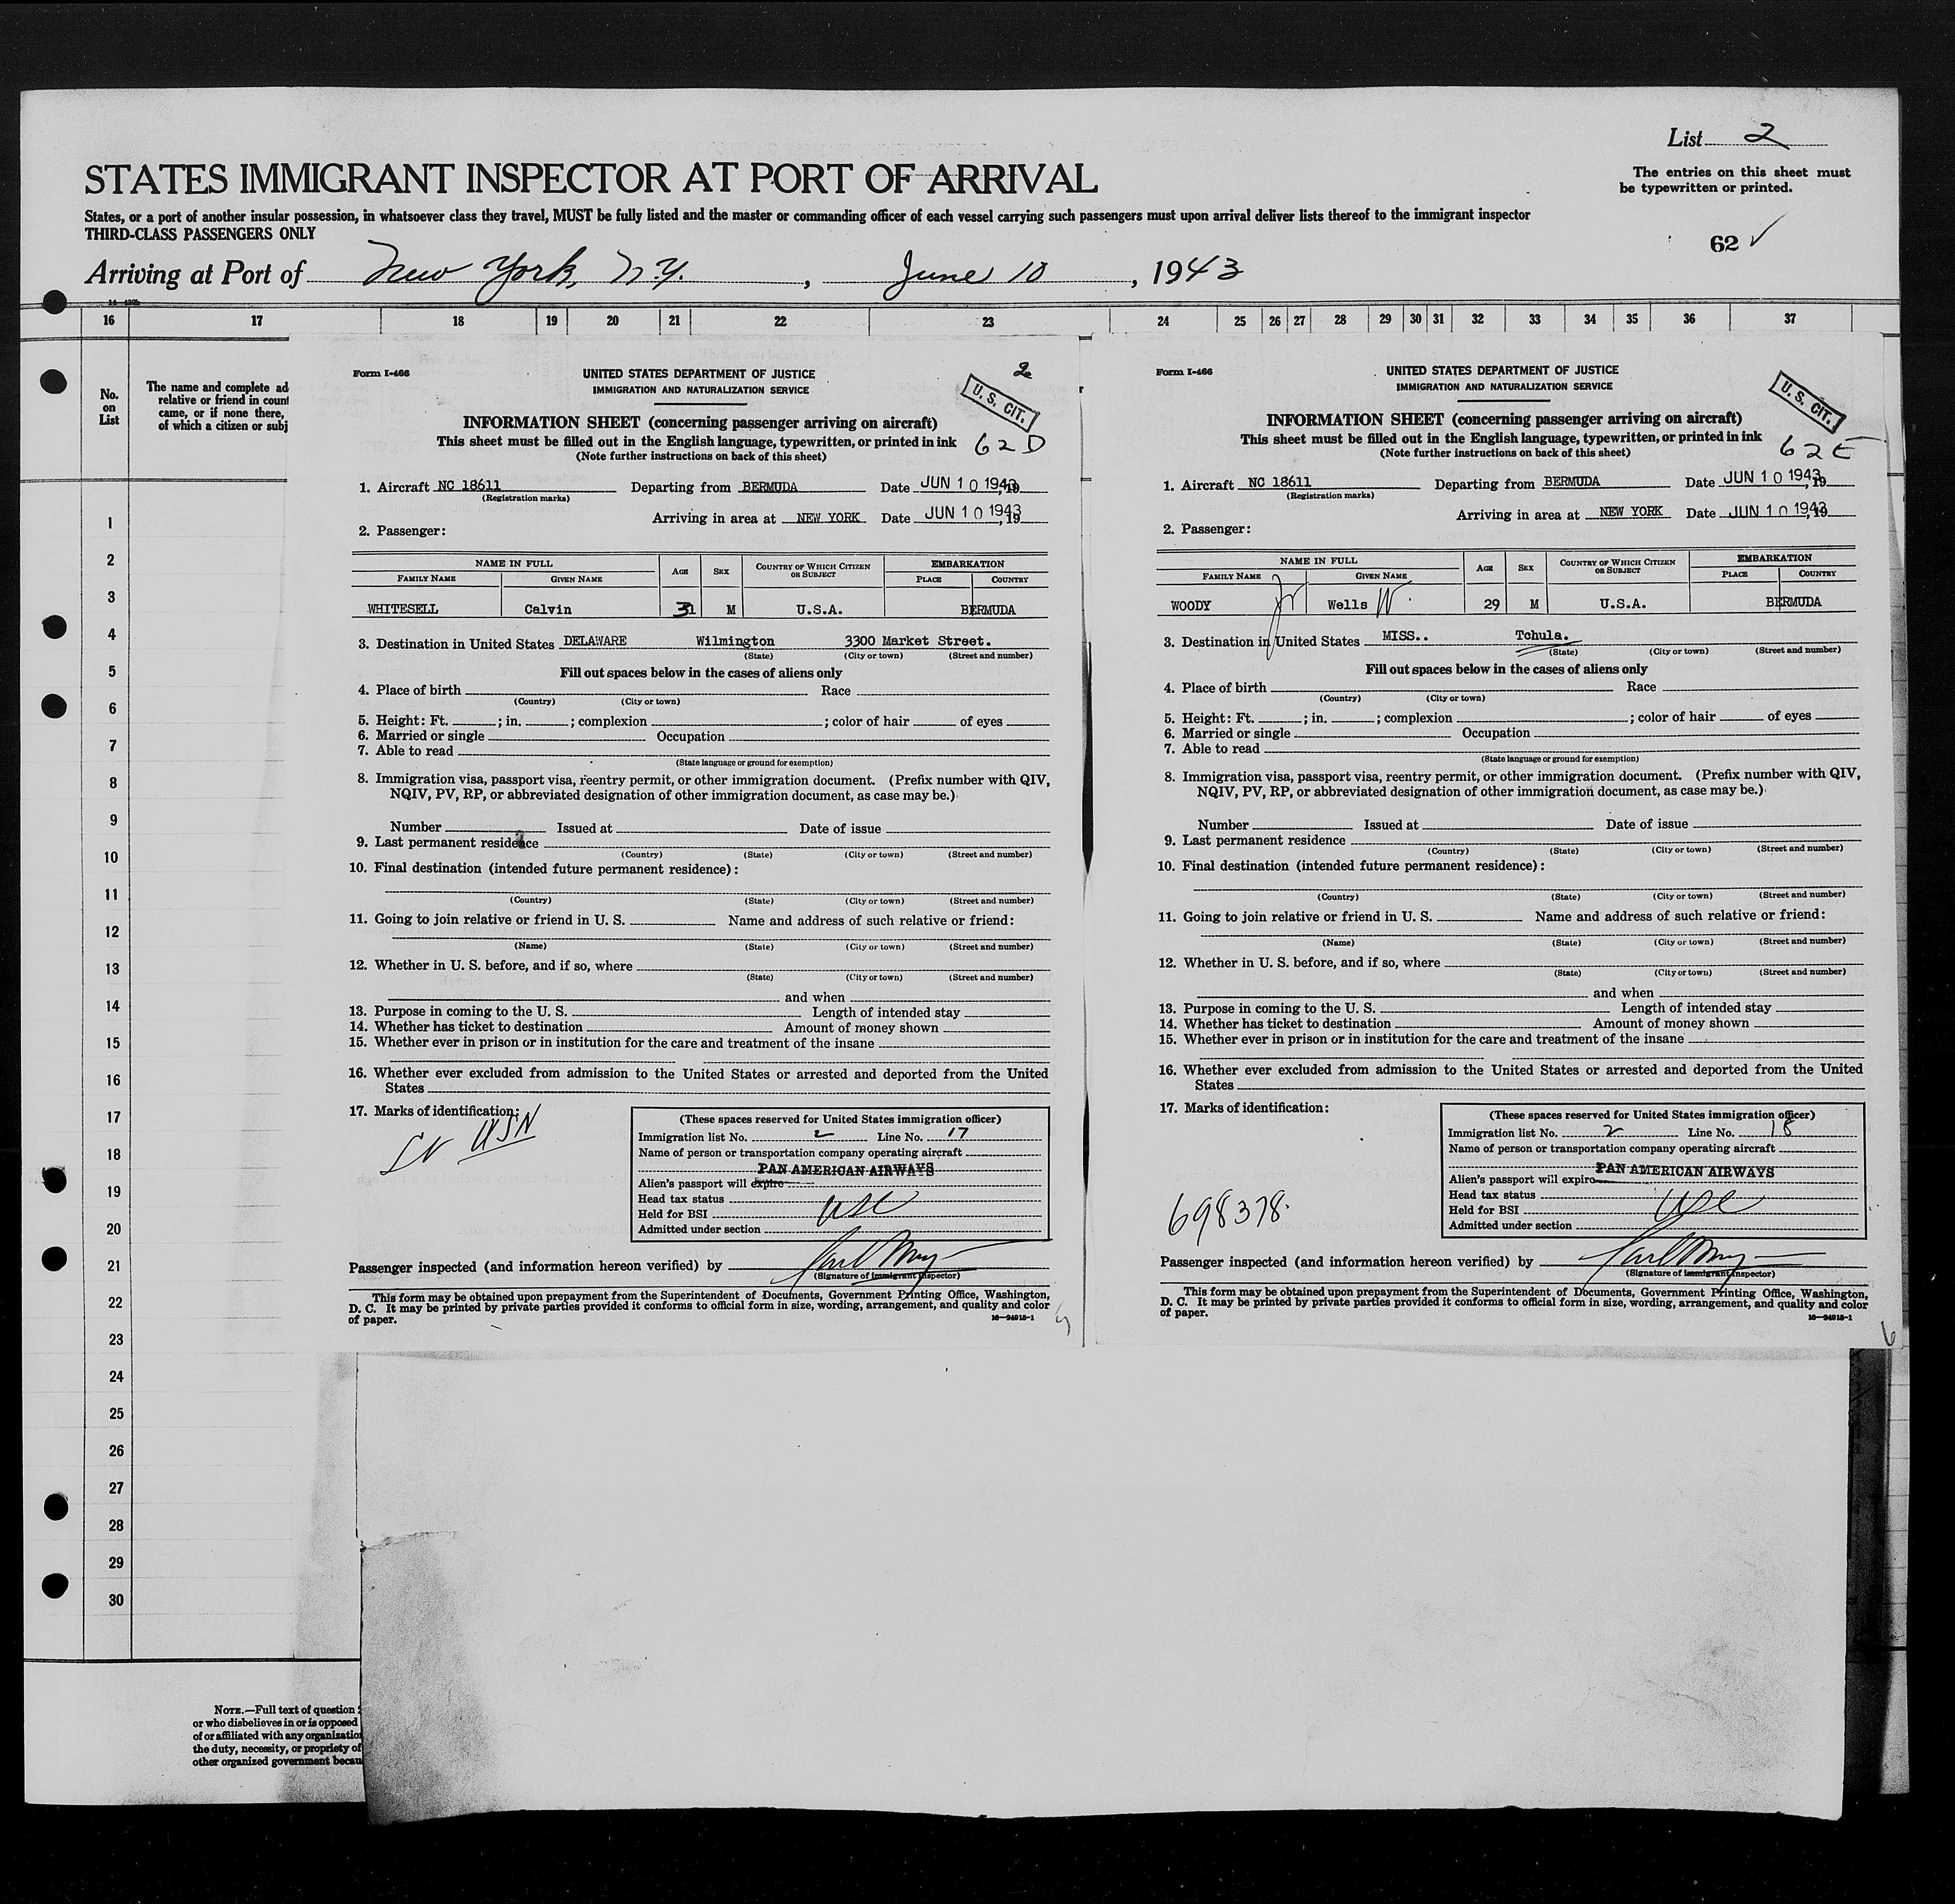 List 2
STATES IMMIGRANT INSPECTOR AT PORT OF ARRIVAL
The entries on this sheet must
be typewritten or printed.
States, or a port of another insular possession, in whatsoever class they travel, MUST be fully listed and the master or commanding officer of each vessel carrying such passengers must upon arrival deliver lists thereof to the immigrant inspector
THIRD-CLASS PASSENGERS ONLY
62 ✓
Arriving at Port of New York, N.Y. , June 10 , 1943
16 17 18 19 20 21 22 23 24 25 26 27 28 29 30 31 32 33 34 35 36 37
No.
on
List
The name and complete ad
relative or friend in count
came, or if none there,
of which a citizen or subj
1
2
3
4
5
6
7
8
9
10
11
12
13
14
15
16
17
18
19
20
21
22
23
24
25
26
27
28
29
30
NOTE.—Full text of question
or who disbelieves in or is opposed
of or affiliated with any organizatio
the duty, necessity, or propriety of
other organized government becau
Form I-466
UNITED STATES DEPARTMENT OF JUSTICE
2
IMMIGRATION AND NATURALIZATION SERVICE
U. S. CIT.
INFORMATION SHEET (concerning passenger arriving on aircraft)
This sheet must be filled out in the English language, typewritten, or printed in ink
62 D
(Note further instructions on back of this sheet)
1. Aircraft NC 18611 Departing from BERMUDA Date JUN 10 1943, 19
(Registration marks)
Arriving in area at NEW YORK Date JUN 10 1943, 19
2. Passenger:
NAME IN FULL
FAMILY NAME GIVEN NAME AGE SEX COUNTRY OF WHICH CITIZEN OR SUBJECT EMBARKATION PLACE COUNTRY
WHITESELL Calvin 31 M U.S.A. BERMUDA
3. Destination in United States DELAWARE Wilmington 3300 Market Street.
(State) (City or town) (Street and number)
Fill out spaces below in the cases of aliens only
4. Place of birth Race
(Country) (City or town)
5. Height: Ft. ; in. ; complexion ; color of hair of eyes
6. Married or single Occupation
7. Able to read
(State language or ground for exemption)
8. Immigration visa, passport visa, reentry permit, or other immigration document. (Prefix number with QIV,
NQIV, PV, RP, or abbreviated designation of other immigration document, as case may be.)
Number Issued at Date of issue
9. Last permanent residence
(Country) (State) (City or town) (Street and number)
10. Final destination (intended future permanent residence):
(Country) (State) (City or town) (Street and number)
11. Going to join relative or friend in U. S. Name and address of such relative or friend:
(Name) (State) (City or town) (Street and number)
12. Whether in U. S. before, and if so, where
(State) (City or town) (Street and number)
and when
13. Purpose in coming to the U. S. Length of intended stay
14. Whether has ticket to destination Amount of money shown
15. Whether ever in prison or in institution for the care and treatment of the insane
16. Whether ever excluded from admission to the United States or arrested and deported from the United
States
17. Marks of identification:
USN
(These spaces reserved for United States immigration officer)
Immigration list No. 2 Line No. 17
Name of person or transportation company operating aircraft
PAN AMERICAN AIRWAYS
Alien's passport will expire
Head tax status
Held for BSI USC
Admitted under section
Passenger inspected (and information hereon verified) by
(Signature of immigrant inspector)
This form may be obtained upon prepayment from the Superintendent of Documents, Government Printing Office, Washington,
D. C. It may be printed by private parties provided it conforms to official form in size, wording, arrangement, and quality and color
of paper.
16—24915-1
Form I-466
UNITED STATES DEPARTMENT OF JUSTICE
IMMIGRATION AND NATURALIZATION SERVICE
U. S. CIT.
INFORMATION SHEET (concerning passenger arriving on aircraft)
This sheet must be filled out in the English language, typewritten, or printed in ink
62 E
(Note further instructions on back of this sheet)
1. Aircraft NC 18611 Departing from BERMUDA Date JUN 10 1943, 19
(Registration marks)
Arriving in area at NEW YORK Date JUN 10 1943, 19
2. Passenger:
NAME IN FULL
FAMILY NAME GIVEN NAME AGE SEX COUNTRY OF WHICH CITIZEN OR SUBJECT EMBARKATION PLACE COUNTRY
WOODY Jr Wells W. 29 M U.S.A. BERMUDA
3. Destination in United States MISS.. Tchula.
(State) (City or town) (Street and number)
Fill out spaces below in the cases of aliens only
4. Place of birth Race
(Country) (City or town)
5. Height: Ft. ; in. ; complexion ; color of hair of eyes
6. Married or single Occupation
7. Able to read
(State language or ground for exemption)
8. Immigration visa, passport visa, reentry permit, or other immigration document. (Prefix number with QIV,
NQIV, PV, RP, or abbreviated designation of other immigration document, as case may be.)
Number Issued at Date of issue
9. Last permanent residence
(Country) (State) (City or town) (Street and number)
10. Final destination (intended future permanent residence):
(Country) (State) (City or town) (Street and number)
11. Going to join relative or friend in U. S. Name and address of such relative or friend:
(Name) (State) (City or town) (Street and number)
12. Whether in U. S. before, and if so, where
(State) (City or town) (Street and number)
and when
13. Purpose in coming to the U. S. Length of intended stay
14. Whether has ticket to destination Amount of money shown
15. Whether ever in prison or in institution for the care and treatment of the insane
16. Whether ever excluded from admission to the United States or arrested and deported from the United
States
17. Marks of identification:
698378.
(These spaces reserved for United States immigration officer)
Immigration list No. 2 Line No. 18
Name of person or transportation company operating aircraft
PAN AMERICAN AIRWAYS
Alien's passport will expire
Head tax status
Held for BSI USC
Admitted under section
Passenger inspected (and information hereon verified) by
(Signature of immigrant inspector)
This form may be obtained upon prepayment from the Superintendent of Documents, Government Printing Office, Washington,
D. C. It may be printed by private parties provided it conforms to official form in size, wording, arrangement, and quality and color
of paper.
16—24915-1